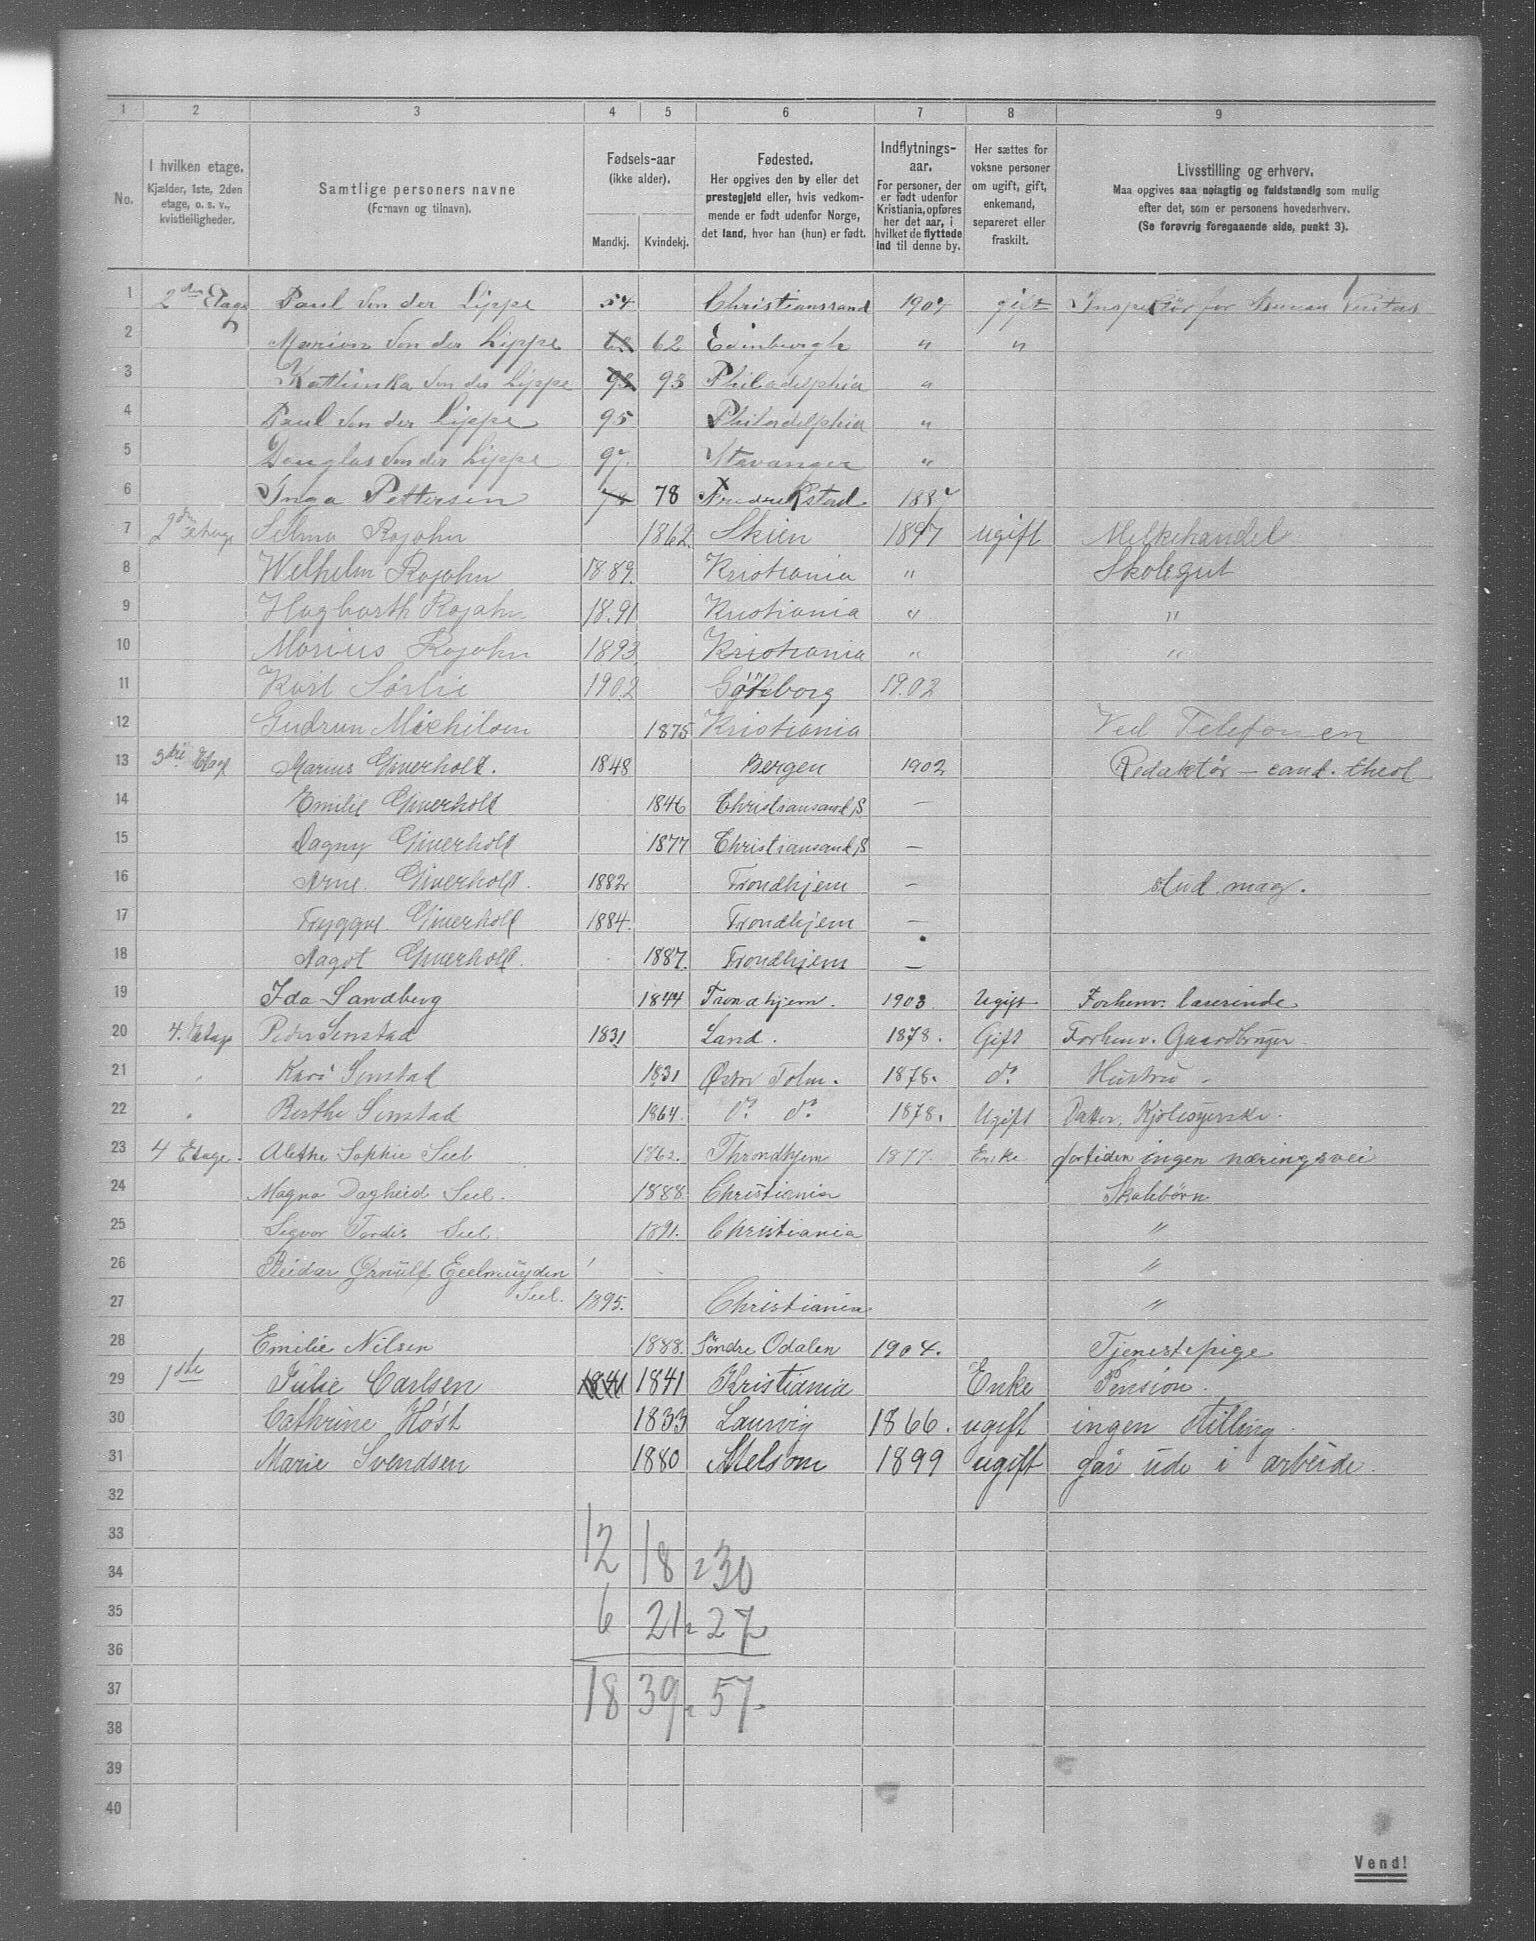 1 2 3 4 5 6 7 8 9
No.
I hvilken etage.
Kjælder, 1ste, 2den
etage, o. s. v.,
kvistleiligheder.
Samtlige personers navne
(Fornavn og tilnavn).
Fødsels-aar
(ikke alder).
Mandkj. Kvindekj.
Fødested.
Her opgives den by eller det
prestegjeld eller, hvis vedkom-
mende er født udenfor Norge,
det land, hvor han (hun) er født.
Indflytnings-
aar.
For personer, der
er født udenfor
Kristiania, opføres
her det aar, i
hvilket de flyttede
ind til denne by.
Her sættes for
voksne personer
om ugift, gift,
enkemand,
separeret eller
fraskilt.
Livsstilling og erhverv.
Maa opgives saa nøiagtig og fuldstændig som mulig
efter det, som er personens hovederhverv.
(Se forøvrig foregaaende side, punkt 3).
1 2den Etage Paul von der Lippe 54 Christianssand gift Inspektør for
2 Marion von der Lippe 62 Edinburgh " "
3 Kathinka von der Lippe 93 93 Philadelphia "
4 Paul von der Lippe 95 Philadelphia "
5 Douglas von der Lippe 97. Stavanger "
6 Inga Pettersen 78 78 Fredrikstad
7 2den etage Selma Rojahn 1862. Skien 1897 ugift Melkehandel
8 Wilhelm Rojahn 1889. Kristiania " Skolegut
9 Hagbarth Rojahn 1891 Kristiania " "
10 Marius Rojahn 1893 Kristiania " "
11 Karl Sørlie 1902 Göteborg 1902
12 Gudrun Michilsen 1875 Kristiania Ved Telefonen
13 3die Etage Marius Giverholt. 1848 Bergen 1902 Redaktør – cand. theol
14 Emilie Giverholt 1846 Christiansand S —
15 Dagny Giverholt 1877 Christiansand S —
16 Arne Giverholt. 1882 Trondhjem — stud. mag.
17 Tryggve Giverholt 1884. Trondhjem —
18 Aagot Giverholt. 1887. Trondhjem —
19 Ida Sandberg 1844 Trondhjem. 1903 Ugift Forhenv. lærerinde
20 4. Etage Peder Sinstad 1831 Land. 1878. Gift Forhenv. Gaardbruger
21 " Kari Sinstad 1831 Østr Toten. 1878. do Hustru
22 " Berthe Sinstad 1864. do do 1878. Ugift Datter, Kjolesyerske.
23 4 Etage. Alethe Sophie Seel 1862. Throndhjem 1877 Enke fortiden ingen næringsvei
24 Magna Dagheid Seel. 1888 Christiania Skolebørn
25 Sigvor Tordis Seel 1891. Christiania "
26 Reidar Ørnulf Geelmuyden "
27 Seel. 1895. Christiania "
28 Emilie Nilsen 1888. Søndre Odalen 1904. Tjenestepige
29 1ste Julie Carlsen 1841 1841 Kristiania Enke Pension.
30 Cathrine Høst 1833 Laurvig 1866. ugift ingen stilling.
31 Marie Svendsen 1880 Melsom 1899 ugift går ude i arbeide.
32
33 12 18 = 30
34
35 6 21 = 27
36
37 18 39 = 57.
38
39
40
Vend!